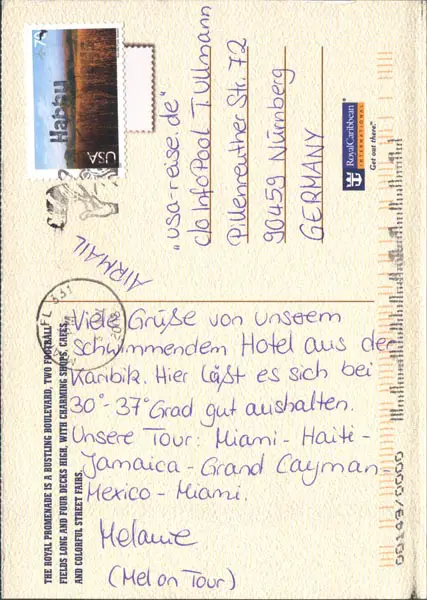 USA
Happy
"usa-reise.de"
c/o InfoPool T. Ullmann
Pillenreuther Str. 72
90459 Nürnberg
GERMANY
AIRMAIL
RoyalCaribbean
INTERNATIONAL
Get out there.
FL 331
Viele Grüße von unserem
schwimmenden Hotel aus der
Karibik. Hier läßt es sich bei
30°-37° Grad gut aushalten.
Unsere Tour: Miami - Haiti -
Jamaica - Grand Cayman -
Mexico - Miami.
Melanie
(Mel on Tour)
THE ROYAL PROMENADE IS A BUSTLING BOULEVARD, TWO FOOTBALL
FIELDS LONG AND FOUR DECKS HIGH, WITH CHARMING SHOPS, CAFES,
AND COLORFUL STREET FAIRS.